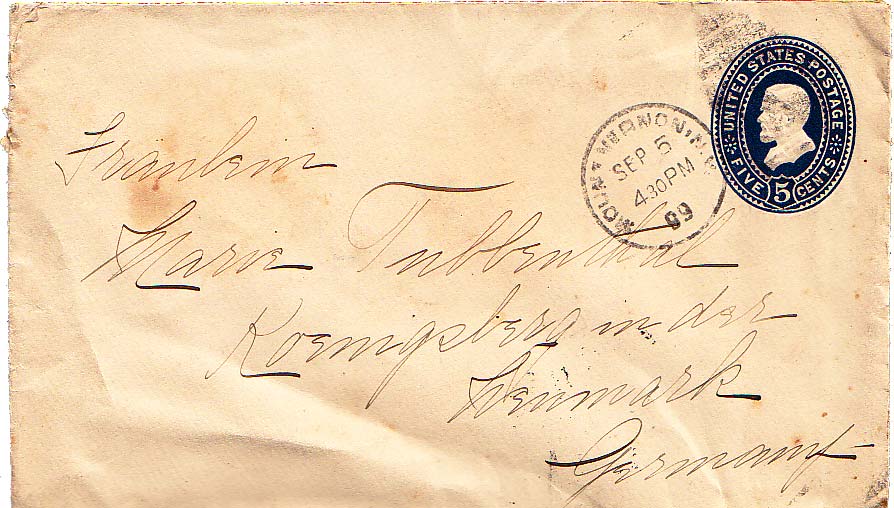 UNITED STATES POSTAGE
FIVE 5 CENTS
MOUNT VERNON, N.Y.
SEP 5
430PM
99
Fräulein
Marie Tubbenthal
Koenigsberg in der
Neumark
Germany